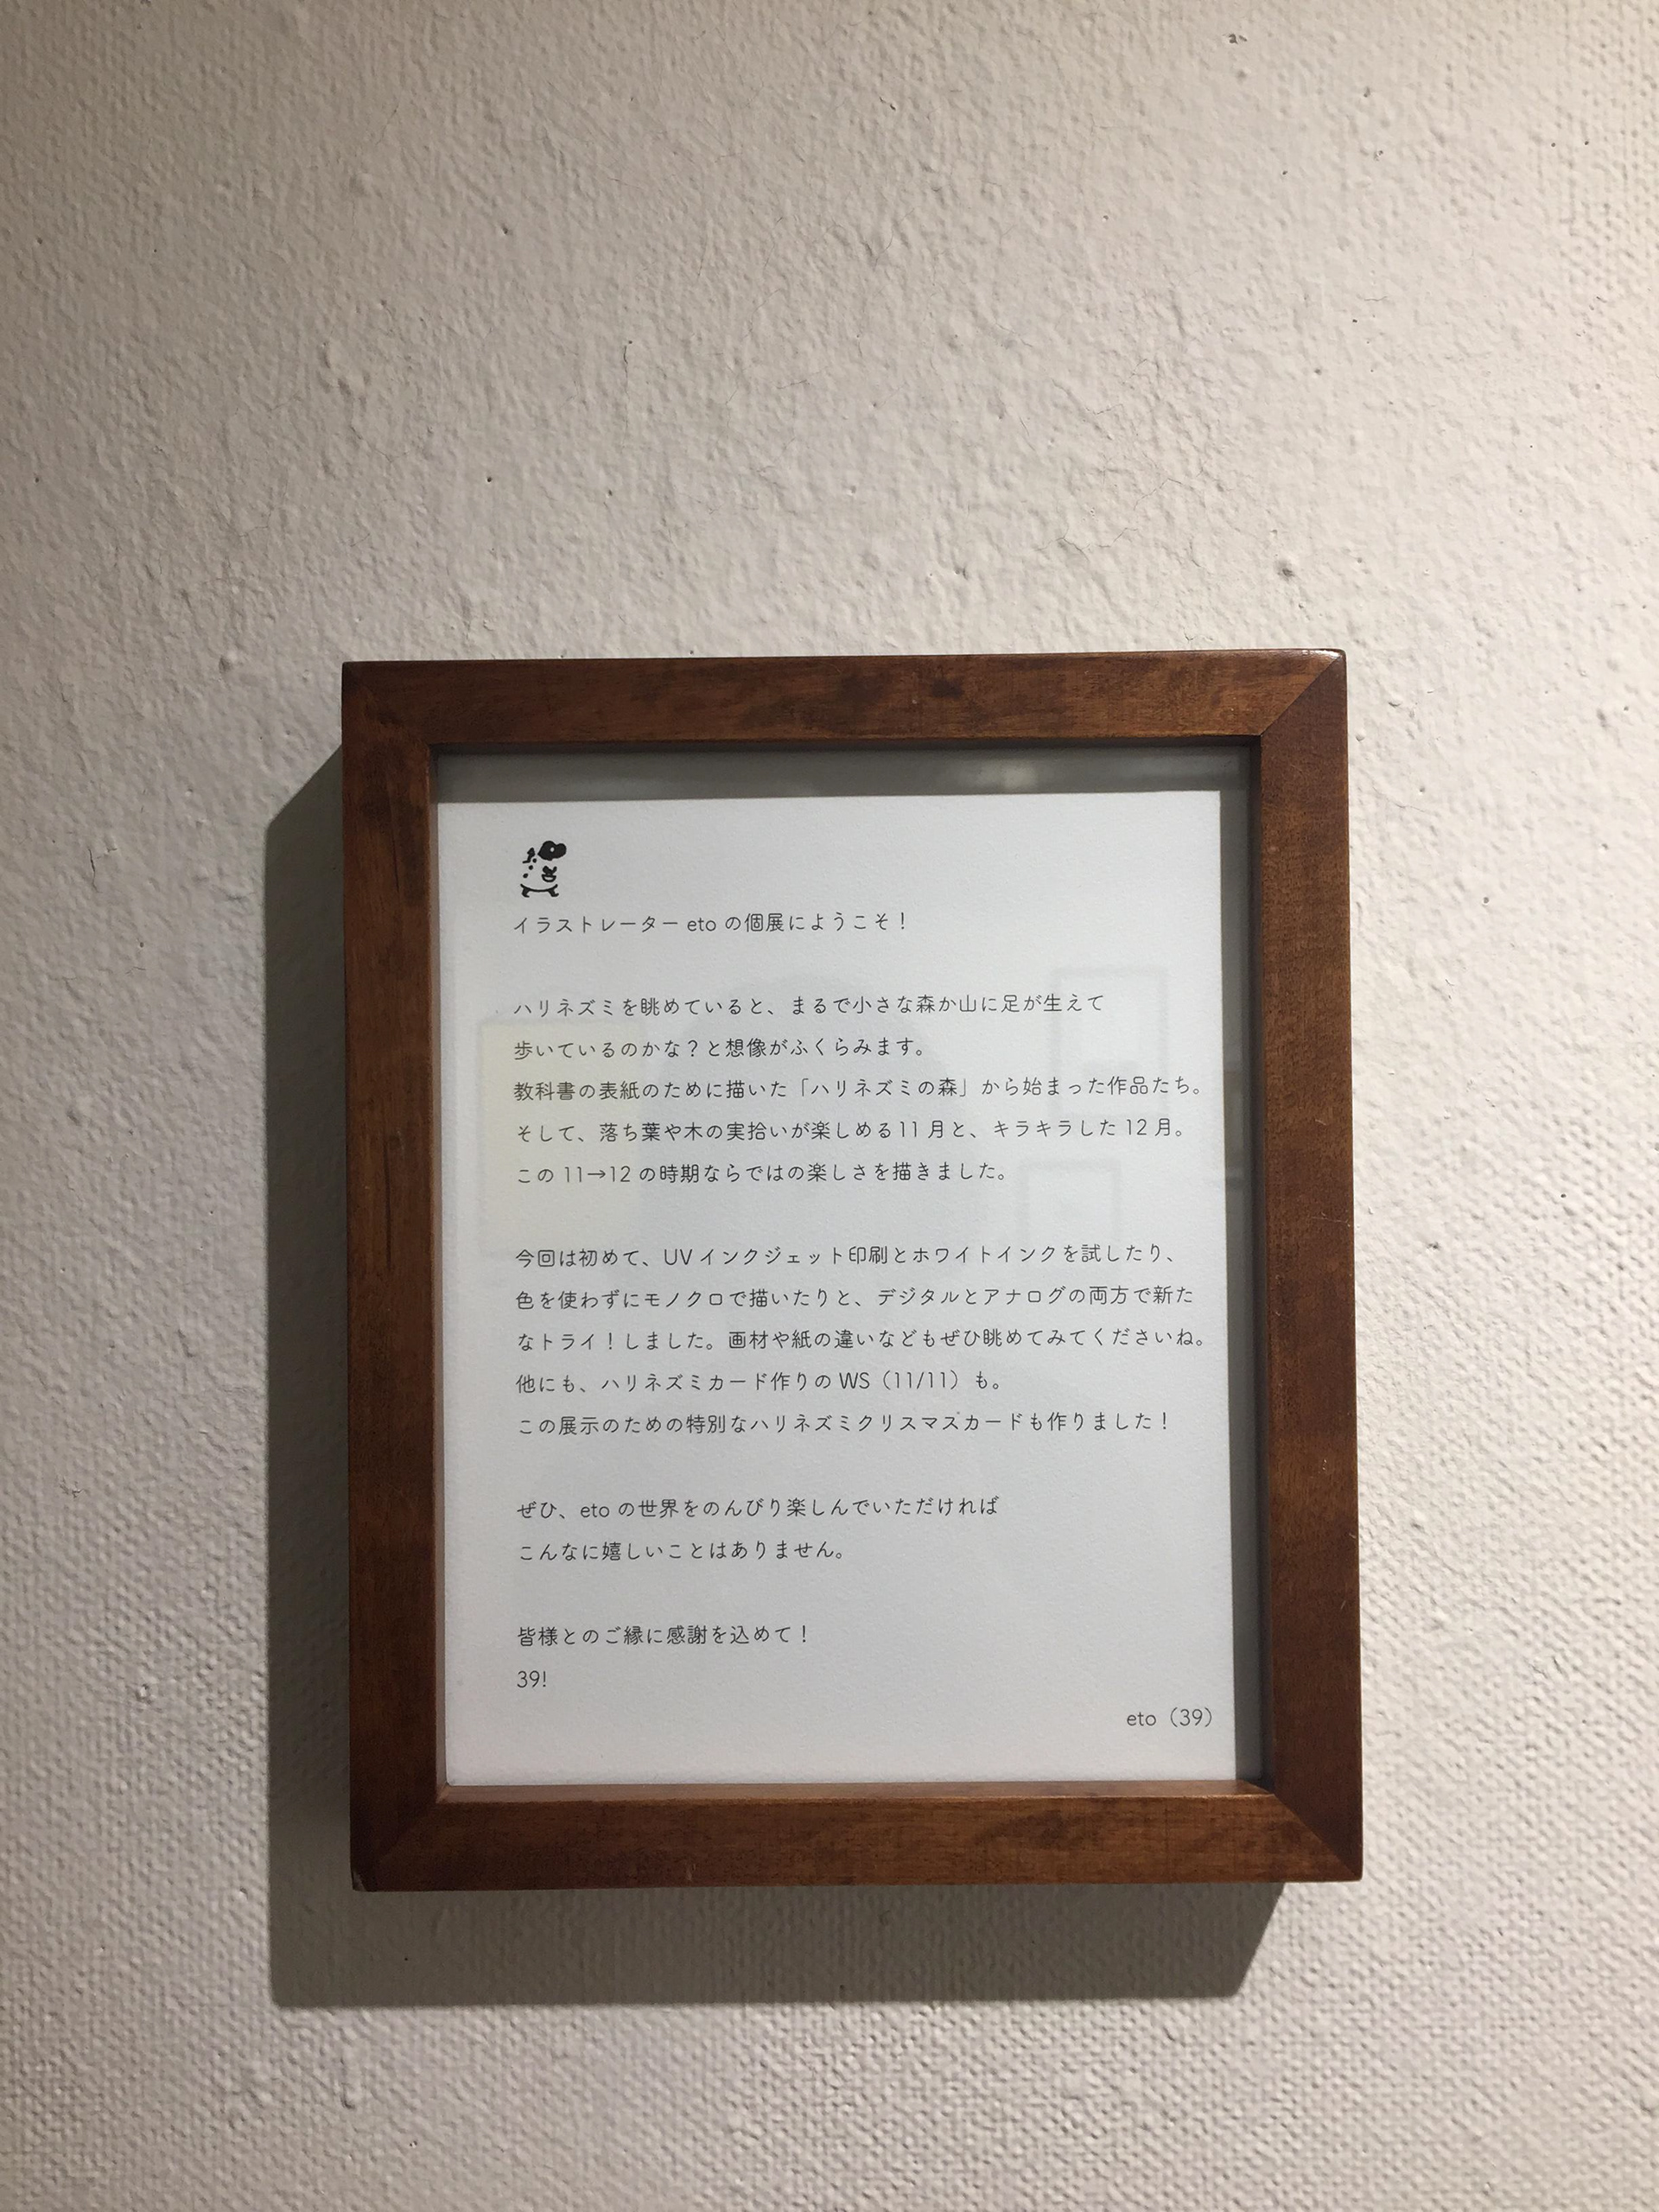 イラストレーター eto の個展にようこそ！
ハリネズミを眺めていると、まるで小さな森か山に足が生えて
歩いているのかな？と想像がふくらみます。
教科書の表紙のために描いた「ハリネズミの森」から始まった作品たち。
そして、落ち葉や木の実拾いが楽しめる11 月と、キラキラした 12 月。
この 11→12 の時期ならではの楽しさを描きました。
今回は初めて、UV インクジェット印刷とホワイトインクを試したり、
色を使わずにモノクロで描いたりと、デジタルとアナログの両方で新た
なトライ！しました。画材や紙の違いなどもぜひ眺めてみてくださいね。
他にも、ハリネズミカード作りの WS（11/11）も。
この展示のための特別なハリネズミクリスマスカードも作りました！
ぜひ、eto の世界をのんびり楽しんでいただければ
こんなに嬉しいことはありません。
皆様とのご縁に感謝を込めて！
39!
eto（39）